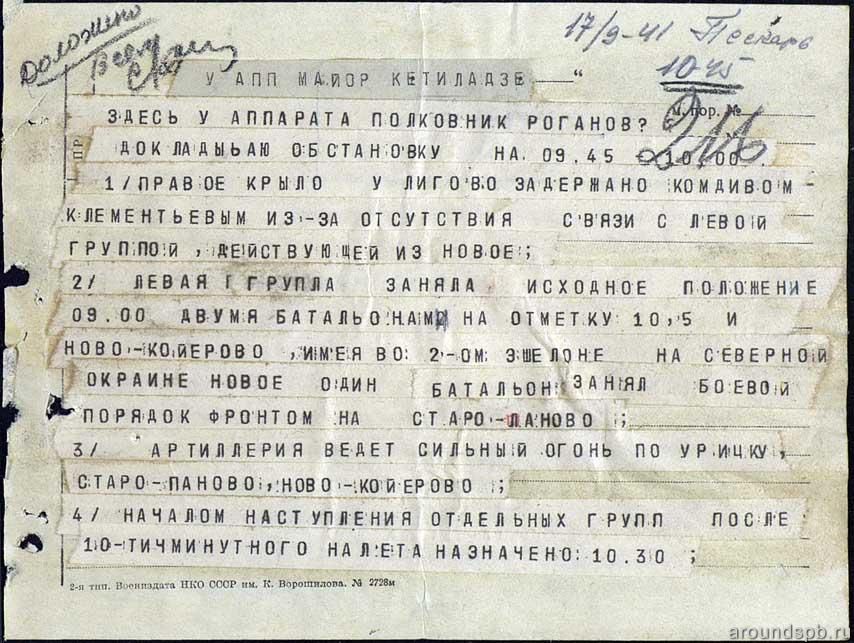 Доложено
17/9-41 Пескарь
1045
У АПП МАЙОР КЕТИЛАДЗЕ — "
м. пор. №
ЗДЕСЬ У АППАРАТА ПОЛКОВНИК РОГАНОВ?
ПР
ДОКЛАДЫЬАЮ ОБСТАНОВКУ НА 09.45 – 10.00
1/ПРАВОЕ КРЫЛО У ЛИГОВО ЗАДЕРЖАНО КОМДИВОМ–
КЛЕМЕНТЬЕВЫМ ИЗ-ЗА ОТСУТСТВИЯ СВЯЗИ С ЛЕВОЙ
ГРУППОЙ ,ДЕЙСТВУЮЩЕЙ ИЗ НОВОЕ;
2/ ЛЕВАЯ ГГРУПЛА ЗАНЯЛА ИСХОДНОЕ ПОЛОЖЕНИЕ
09.00 ДВУМЯ БАТАЛЬОНАМИ НА ОТМЕТКУ 10,5 И
НОВО-КОЙЕРОВО ,ИМЕЯ ВО 2-ОМ ЭШЕЛОНЕ НА СЕВЕРНОЙ
ОКРАИНЕ НОВОЕ ОДИН БАТАЛЬОН ЗАНЯЛ БОЕВОЙ
ПОРЯДОК ФРОНТОМ НА СТАРО-ПАНОВО ;
3/ АРТИЛЛЕРИЯ ВЕДЕТ СИЛЬНЫЙ ОГОНЬ ПО УРИЧКУ,
СТАРО-ПАНОВО,НОВО-КОЙЕРОВО ;
4/ НАЧАЛОМ НАСТУПЛЕНИЯ ОТДЕЛЬНЫХ ГРУПП ПОСЛЕ
10-ТИЧМИНУТНОГО НАЛЕТА НАЗНАЧЕНО 10.30 ;
2-я тип. Воениздата НКО СССР им. К. Ворошилова. № 2728м
aroundspb.ru